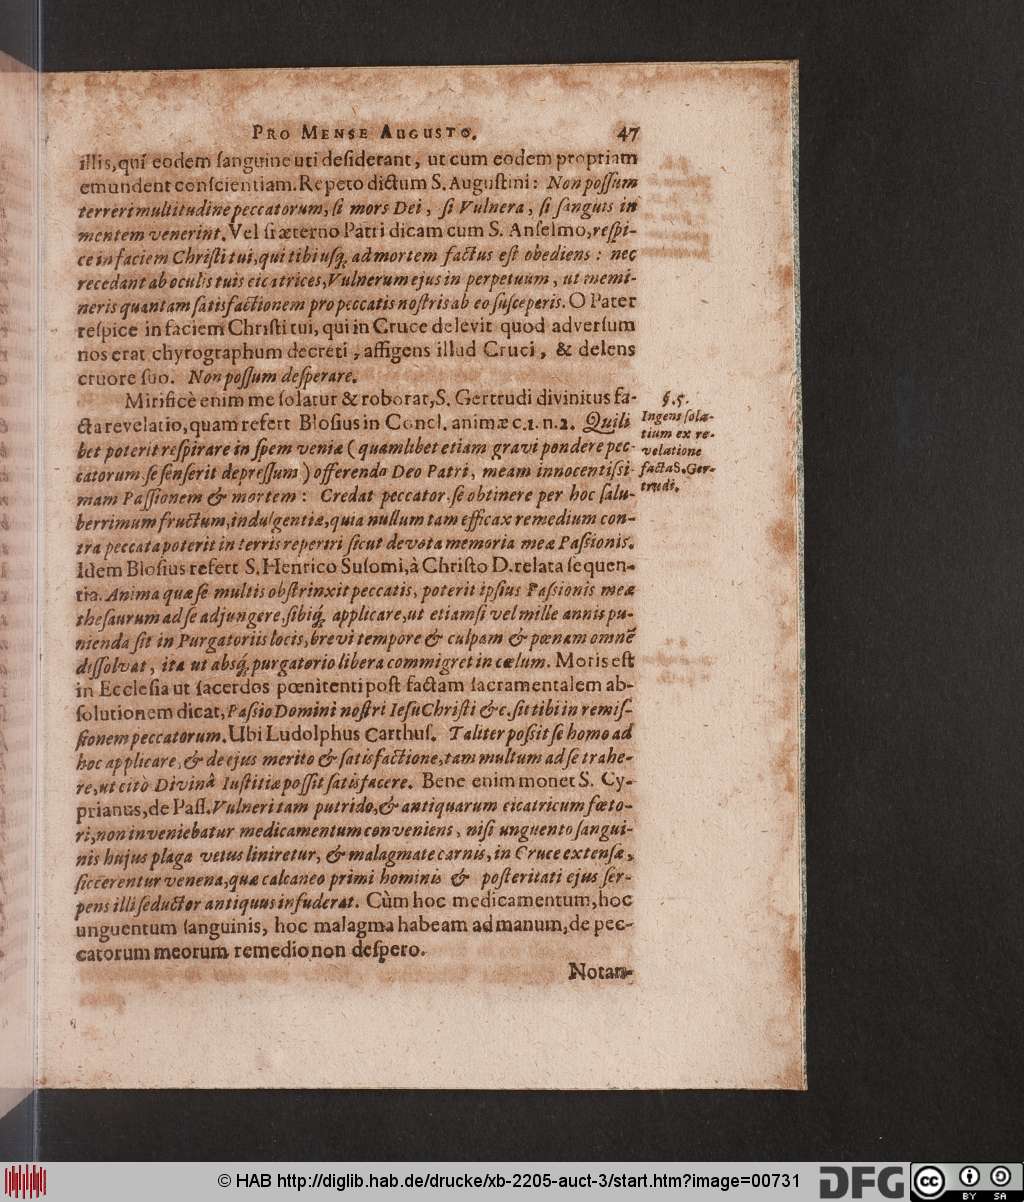 PRO MENSE AUGUSTO. 47
illis, qui eodem ſanguine uti deſiderant, ut cum eodem propriam
emundent conſcientiam. Repeto dictum S. Auguſtini: Non poſſum
terreri multitudine peccatorum, ſi mors Dei, ſi Vulnera, ſi ſanguis in
mentem venerint. Vel ſi æterno Patri dicam cum S. Anſelmo, reſpi-
ce in faciem Chriſti tui, qui tibi uſq́; ad mortem factus eſt obediens: nec
recedant ab oculis tuis cicatrices, Vulnerum ejus in perpetuum, ut memi-
neris quantam ſatisfactionem pro peccatis noſtris ab eo ſuſceperis. O Pater
reſpice in faciem Chriſti tui, qui in Cruce delevit quod adverſum
nos erat chyrographum decreti, affigens illud Cruci, & delens
cruore ſuo. Non poſſum deſperare.
Mirificè enim me ſolatur & roborat, S. Gertrudi divinitus fa-
cta revelatio, quam refert Bloſius in Concl. animæ c. 1. n. 2. Quili
bet poterit reſpirare in ſpem veniæ (quamlibet etiam gravi pondere pec-
catorum ſe ſenſerit depreſſum) offerendo Deo Patri, meam innocentiſsi-
mam Paſsionem & mortem: Credat peccator ſe obtinere per hoc ſalu-
berrimum fructum, indulgentiæ, quia nullum tam efficax remedium con-
tra peccata poterit in terris reperiri ſicut devota memoria meæ Paſsionis.
Idem Bloſius refert S. Henrico Suſomi, à Chriſto D. relata ſequen-
tia. Anima quæ ſe multis obſtrinxit peccatis, poterit ipſius Paſsionis meæ
theſaurum ad ſe adjungere, ſibiq́; applicare, ut etiamſi vel mille annis pu-
nienda ſit in Purgatoriis locis, brevi tempore & culpam & pœnam omnē
diſſolvat, ita ut abſq́; purgatorio libera commigret in cælum. Moris eſt
in Eccleſia ut ſacerdos pœnitenti poſt factam ſacramentalem ab-
ſolutionem dicat, Paſsio Domini noſtri Ieſu Chriſti &c. ſit tibi in remiſ-
ſionem peccatorum. Ubi Ludolphus Carthuſ. Taliter poſsit ſe homo ad
hoc applicare, & de ejus merito & ſatisfactione, tam multum ad ſe trahe-
re, ut citò Divinâ Iuſtitiæ poſſit ſatisfacere. Bene enim monet S. Cy-
prianus, de Paſſ. Vulneri tam putrido, & antiquarum cicatricum fœto-
ri, non inveniebatur medicamentum conveniens, niſi unguento ſangui-
nis hujus plaga vetus liniretur, & malagmate carnis, in Cruce extenſæ,
ſiccerentur venena, quæ calcaneo primi hominis & poſteritati ejus ſer-
pens illi ſeductor antiquus infuderat. Cùm hoc medicamentum, hoc
unguentum ſanguinis, hoc malagma habeam ad manum, de pec-
catorum meorum remedio non deſpero.
Notan-
§. 5.
Ingens ſola-
tium ex re-
velatione
facta S. Ger-
trudi.
© HAB http://diglib.hab.de/drucke/xb-2205-auct-3/start.htm?image=00731
DFG
cc BY SA